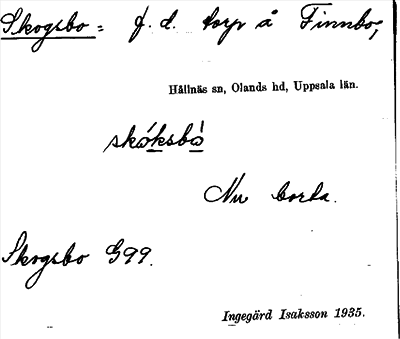 Skogsbo = f. d. torp å Finnbo,
Hållnäs sn, Olands hd, Uppsala län.
skóksbò
Nu borda.
Skogsbo G99.
Ingegärd Isaksson 1935.